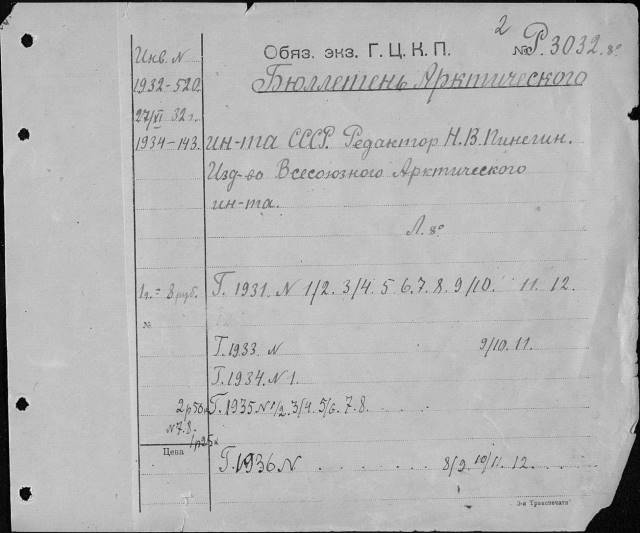 2
Обяз. экз. Г. Ц. К. П.
№ Р. 3032. 8°
Инв. N
1932-520
27/VI 32 г.
1934-143.
Бюллетень Арктического
ин-та СССР. Редактор Н. В. Пинегин.
Изд-во Всесоюзного Арктического
ин-та.
Л. 8°
1 г. = 8 руб.
Г. 1931. N 1/2. 3/4. 5. 6. 7. 8. 9/10. 11. 12.
№
Г. 1933. N 9/10. 11.
Г. 1934. N 1.
2 р 50 к
Г. 1935 N 1/2. 3/4. 5/6. 7. 8.
N 7. 8.
1 р 25 к
Цена
Г. 1936 N 8/9. 10/11. 12.
3-я "Транспечати"